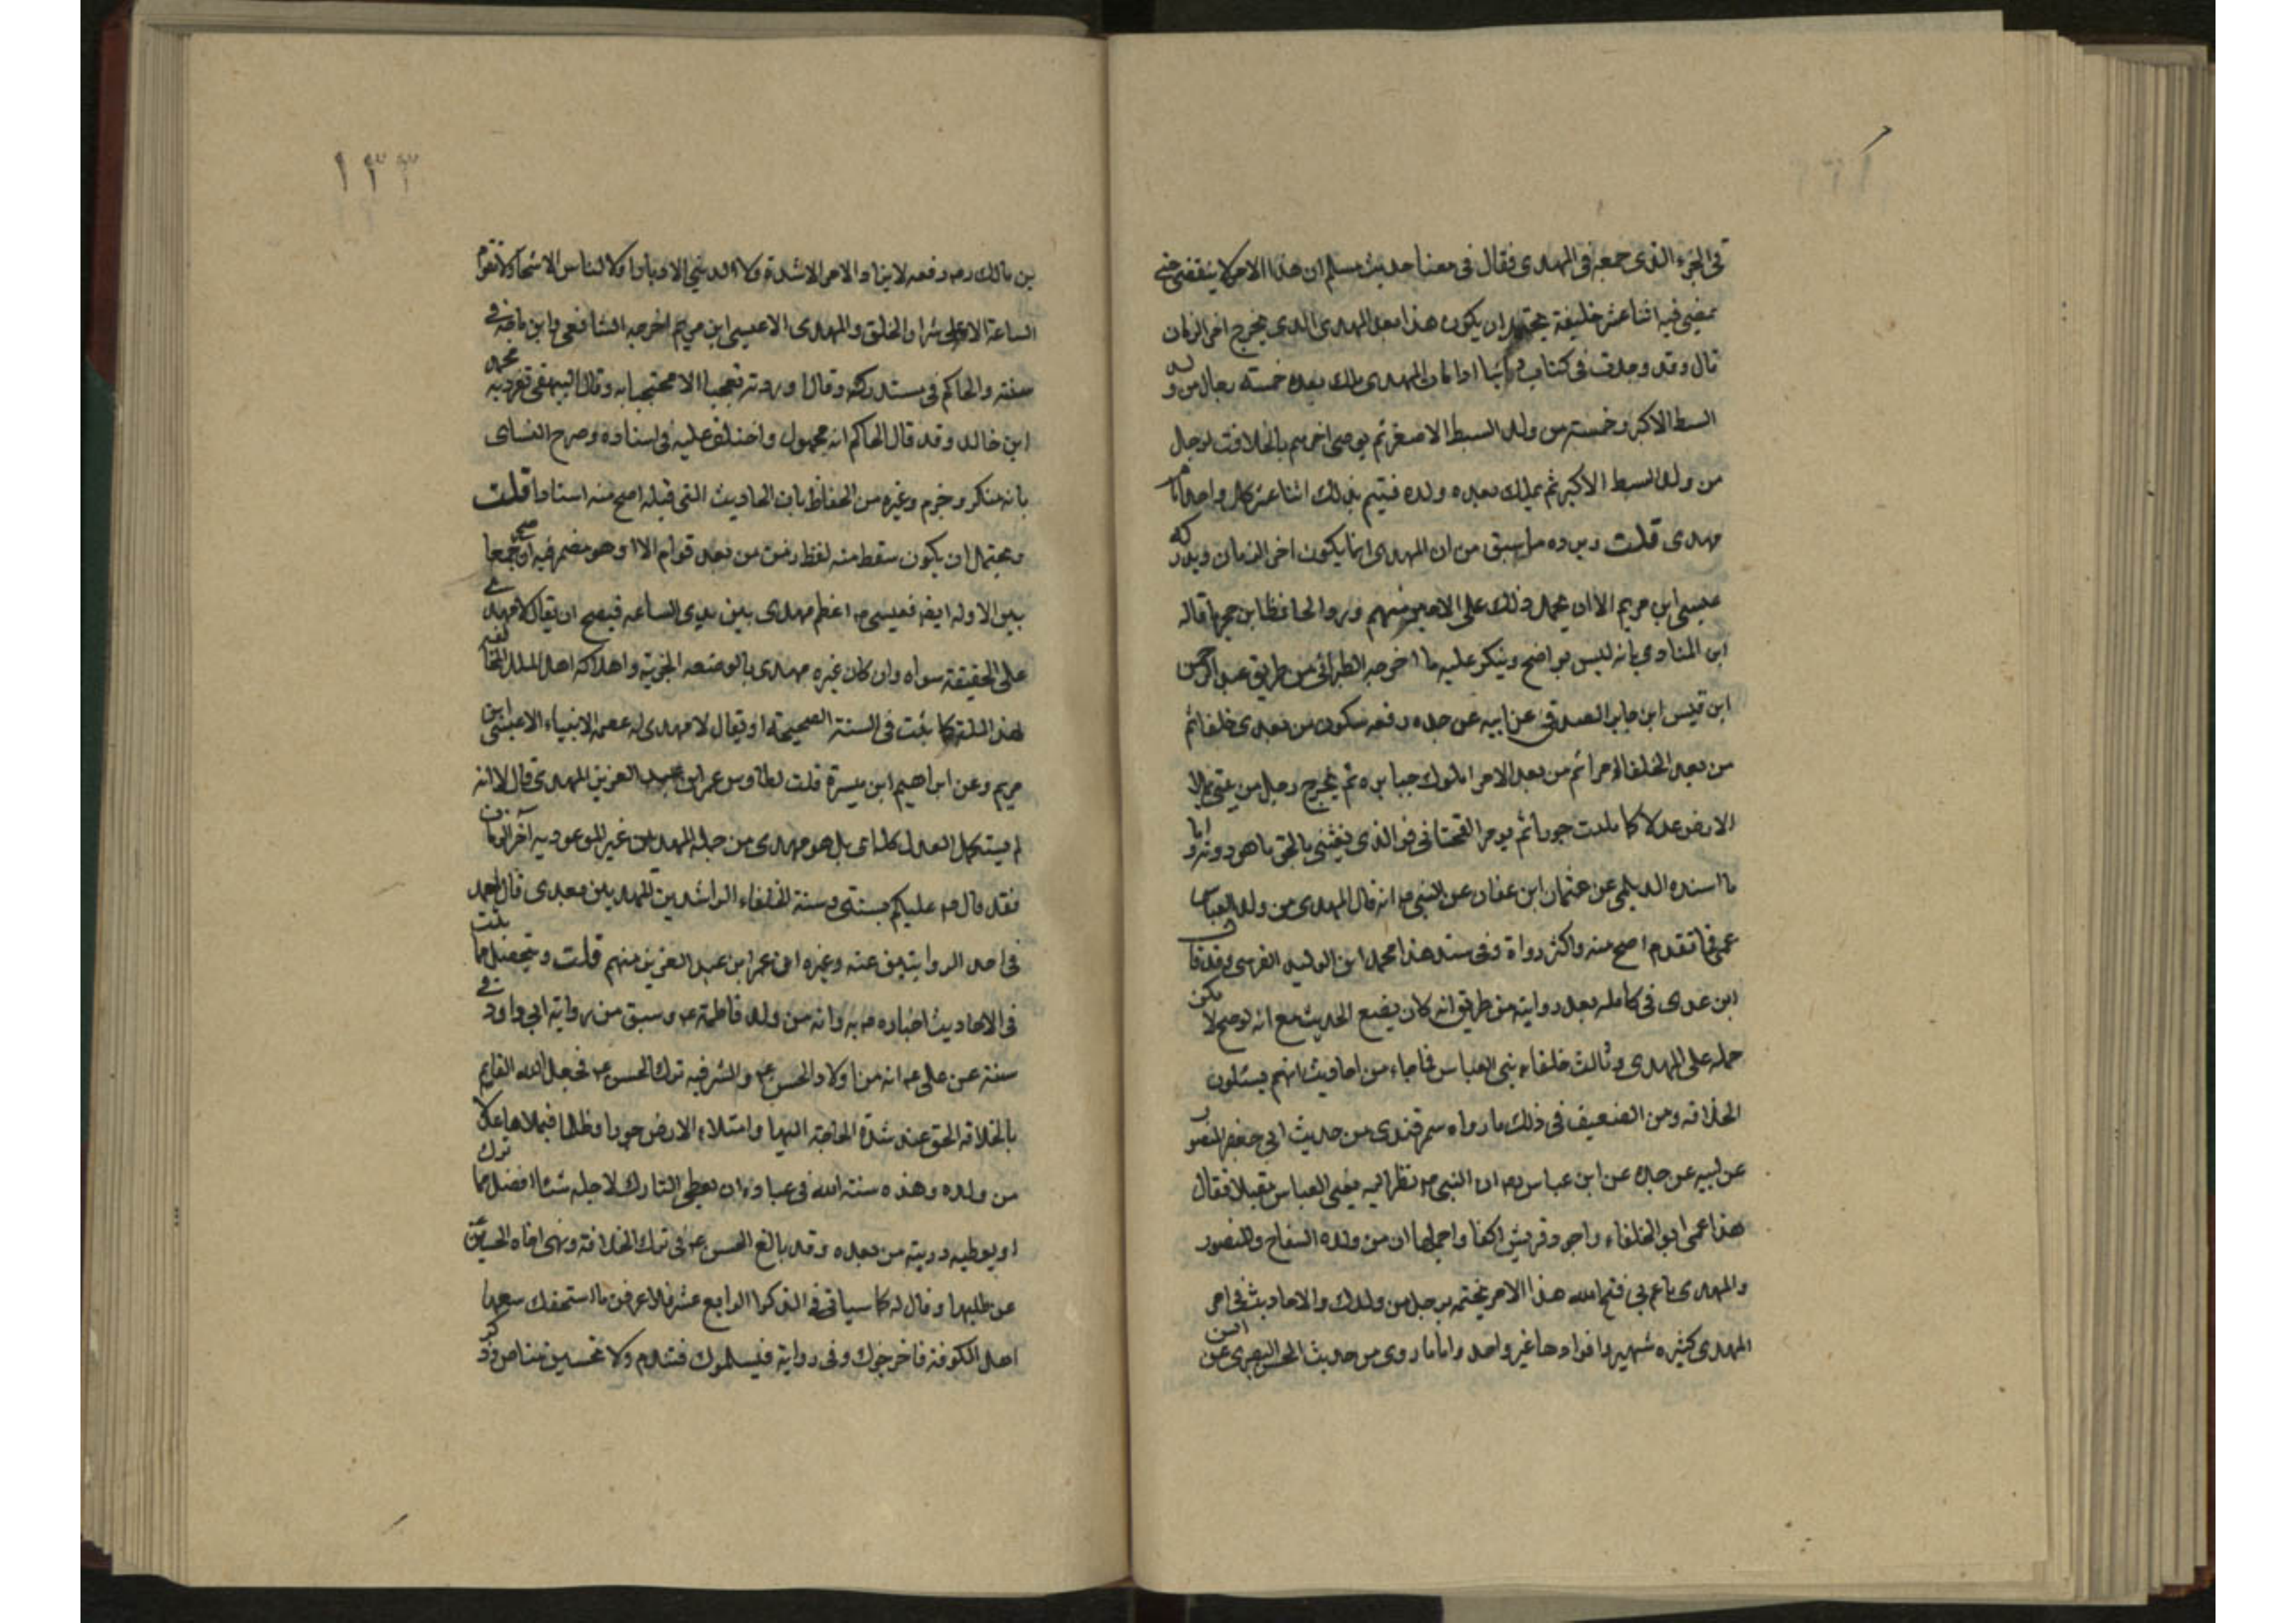 في الجزء الذي جمعه في المهدي فقال في معنا حديث مسلم ان هذا الامر لا ينقضي حتى
يمضي فيه اثنا عشر خليفة يحتمل ان يكون هذا بعد المهدي الذي يخرج اخر الزمان
قال وقد وجدت في كتاب دانيا اذا مات المهدي ملك بعده خمسة رجال من ولد
السبط الاكبر وخمسة من ولد السبط الاصغر ثم يوصي اخرهم بالخلافت لرجل
من ولد السبط الاكبر ثم يملك بعده ولده فيتم بذلك اثنا عشر كل واحد امام
مهدي قلت ويرده ما سبق من ان المهدي انما يكون اخر الزمان ويدركه
عيسى ابن مريم الا ان يحمل ذلك على الامير منهم ورد الحافظ ابن حجر ما قاله
ابن المنادي بانه ليس بواضح وينكر عليه ما اخرجه الطبراني من طريق عبد الرحمن
ابن قيس ابن جابر الصدفي عن ابيه عن جده رفعه سكون من بعدي خلفا ثم
من بعد الخلفا الامرا ثم من بعد الامرا الملوك جبابره ثم يخرج رجل من عترتي يملا
الارض عدلا كما ملئت جورا ثم يومر القحتاني فو الذي بعثني بالحق ما هو دونه واما
ما اسنده الديلمي عن عثمان ابن عفان عن النبي ص انه قال المهدي من ولد العباس
عمي فما تقدم اصح منه واكثر رواة وفي سند هذا محمد ابن الوليد القرسي وقد قال
ابن عدي في كامله بعد روايته من طريق انه كان يضع الحديث مع انه لو صح لامكن
حمله على المهدي وثالث خلفاء بني العباس فما جاء من احاديث انهم يسئلون
الخلافه ومن الضعيف في ذلك ما رواه سمرقندي من حديث ابي جعفر المنصور
عن ابيه عن جده عن ابن عباس رض ان النبي ص نظر اليه يعني العباس مقبلا فقال
هذا عمي ابو الخلفاء واجود قريش اكفا واجملها ان من ولده السفاح والمنصور
والمهدي يا عم بي فتح الله هذا الامر يختمه برجل من ولدك والاحاديث في امر
المهدي كثيره شهيره افرادها غير واحد واما ما روي من حديث الحسن البصري عن انس
١٣٣
بن مالك رض رفعه لا يزداد الامر الا شدة ولا الدنيي الا ادبارا ولا الناس الا شحا ولا تقوم
الساعة الا على شرار الخلق والمهدي الا عيسى ابن مريم اخرجه الشافعي وابن ماجة في
سننه والحاكم في مستدركه وقال اوردته تعجبا الا محتجا به وقال البيهقي تفرد به محمد
ابن خالد وقد قال الحاكم انه مجهول واختلف عليه في اسناده وصرح النساى
بانه منكر وجزم وغيره من الحفاظ بان الحاديث التي قبله اصح منه اسنادا قلت
ويحتمل ان يكون سقط منه لفظ زمن من بعد قوله الا او هو مضمر فيه او صح جمعا
بين الاوله ايضه فعيسى ص اعظم مهدي بين يدي الساعه فيصح ان يقال لا مهدي
على الحقيقة سواه وان كان غيره مهدي بالوضعه الجزية واهلاكه اهل الملل المخالفه
لهذ الملة كما بثت في السنة الصحيحة او يقال لا مهدي له عصمه الانبياء الا عيسى ابن
مريم وعن ابراهيم ابن ميسرة قلت لطاوس عمر ابن عبد العزيز المهدي قال لا انه
لم يستكمل العدل كله اى بل هو مهدي من جملة المهدين غير الموعود به آخر الزمان
فقد قال ص عليكم بسنتي وسنة الخلفاء الراشدين المهديين بعدي قال احمد
في احد الروايتين عنه وغيره ان عمر ابن عبد العزيز منهم قلت ويتحصل مما بثت
في الاحاديث اخباره ص به وانه من ولد فاطمة ع وسبق من رواية ابي داود في
سننه عن علي ع انه من اولاد الحسن ع والسر فيه ترك الحسن ع فجعل الله القايم
بالخلافة الحق عند شدة الحاجة اليها وامتلاء الارض جورا وظلما فيملاها عدلا
من ولده وهذه سنة الله في عباده ان يعطي التارك لاجله شئا افضل مما ترك
او يعطيه دريته من بعده وقد بالغ الحسن ع في ترك الخلافة ونهى اخاه الحسين ع
عن طلبها وقال له كما سياتي في الذكر الرابع عشر فلا عرفن ما استحفك سفها
اهل الكوفة فاخرجوك وفي رواية فيسلموك فتندم ولا تحسين مناص وذكر